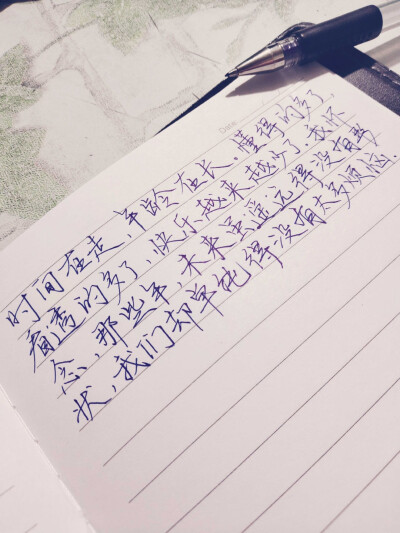 Date:
时间在走,年龄在长。懂得的多了,
看透的多了,快乐越来越少了。我怀
念,那些年,未来虽遥远得没有形
状,我们却单纯得没有太多烦恼.